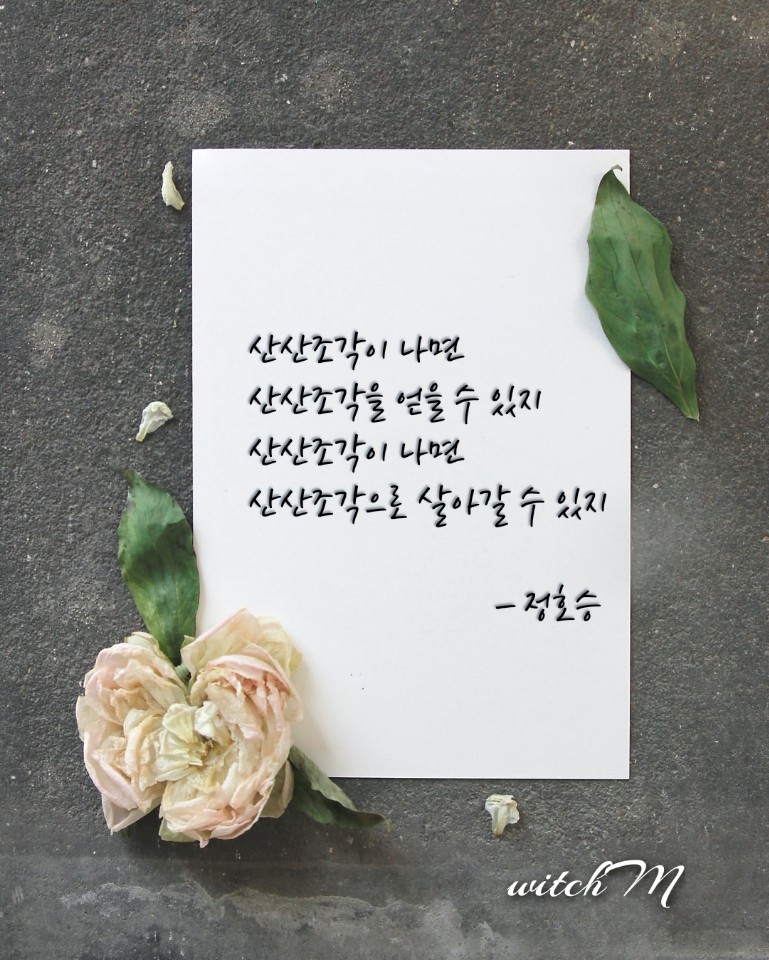 산산조각이 나면
산산조각을 얻을 수 있지
산산조각이 나면
산산조각으로 살아갈 수 있지
- 정호승
witchM